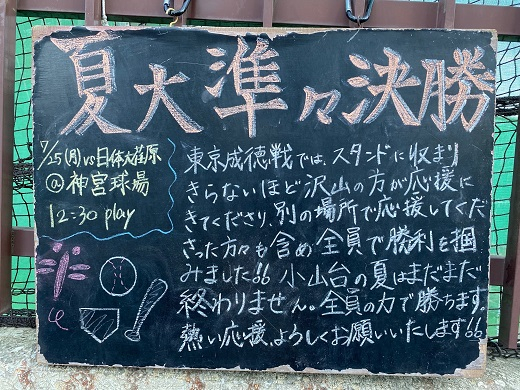 夏大準々決勝
7/25(月) vs 日体大荏原
@神宮球場
12:30 play
東京成徳戦では、スタンドに収まり
きらないほど沢山の方が応援に
きてくださり、別の場所で応援してくだ
さった方々も含め全員で勝利を掴
みました!! 小山台の夏はまだまだ
終わりません。全員の力で勝ちます。
熱い応援、よろしくお願いいたします!!